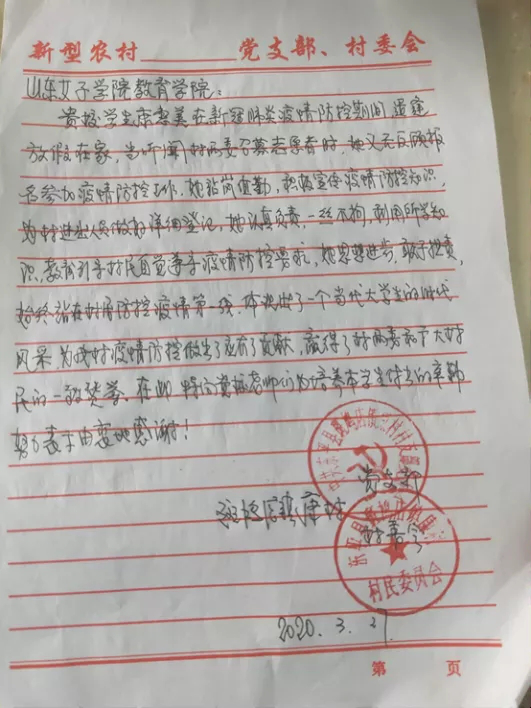 新型农村________党支部、村委会
山东女子学院教育学院:
贵校学生康惠美在新冠肺炎疫情防控期间,适逢
放假在家,当听闻村两委召募志愿者时,她义无反顾报
名参加疫情防控工作,她站岗值勤,积极宣传疫情防控知识,
为村进出人员做好详细登记,她认真负责,一丝不拘,利用所学知
识,教育引导村民自觉遵守疫情防控要求,她思想进步,敢于担责,
始终站在村居防控疫情第一线,体现出了一个当代大学生的时代
风采,为我村疫情防控做出了应有了贡献,赢得了村两委和广大村
民的一致赞誉。在此,特向贵校老师们为培养本学生付出的辛勤
努力表示由衷地感谢!
党支部
班鸠店镇康村
村委会
村民委员会
2020.3.27
第 页